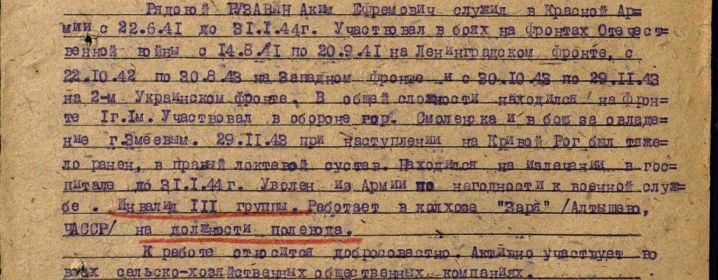 Рядовой ГУЗАВИН Аким Ефремович служил в Красной Ар=
мии с 22.6.41 до 31.I.44г. Участвовал в боях на фронтах Отечест=
венной войны с 14.8.41 по 20.9.41 на Ленинградском фронте, с
22.10.42 по 30.8.43 на Западном фронте и с 30.10.43 по 29.II.43
на 2-м Украинском фронте. В общей сложности находился на фрон=
те 1г.1м. Участвовал в обороне гор. Смоленска и в бою за овладе=
ние г.Змеевым. 29.II.43 при наступлении на Кривой Рог был тяже=
ло ранен, в правый локтевой сустав. Находился на излечении в гос=
питале до 31.I.44г. Уволен из Армии по негодности к военной служ=
бе. Инвалид III группы. Работает в колхозе "Заря" /Алтышево,
ЧАССР/ на должности полевода.
К работе относится добросовестно. Активно участвует во
всех сельско-хозяйственных общественных компаниях.